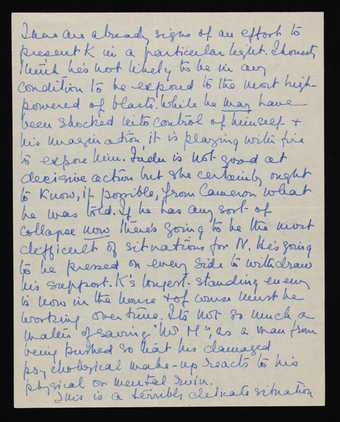 There are already signs of an effort to
present K in a particular light. I honestly
think he's not likely to be in any
condition to be exposed to the most high-
powered of blasts. While he may have
been shocked into control of himself &
his imagination, it is playing with fire
to expose him. Indu is not good at
decisive action but she certainly ought
to know, if possible, from Cameron what
he was told. If he has any sort of
collapse now there's going to be the most
difficult of situations for N. He's going
to be pressed on every side to withdraw
his support. K's longest-standing enemy
is now in the house & of course must be
working over time. It's not so much a
matter of saving "Mr M", as a man from
being pushed so that his damaged
psychological make-up reacts to his
physical or mental ruin.
This is a terribly delicate situation